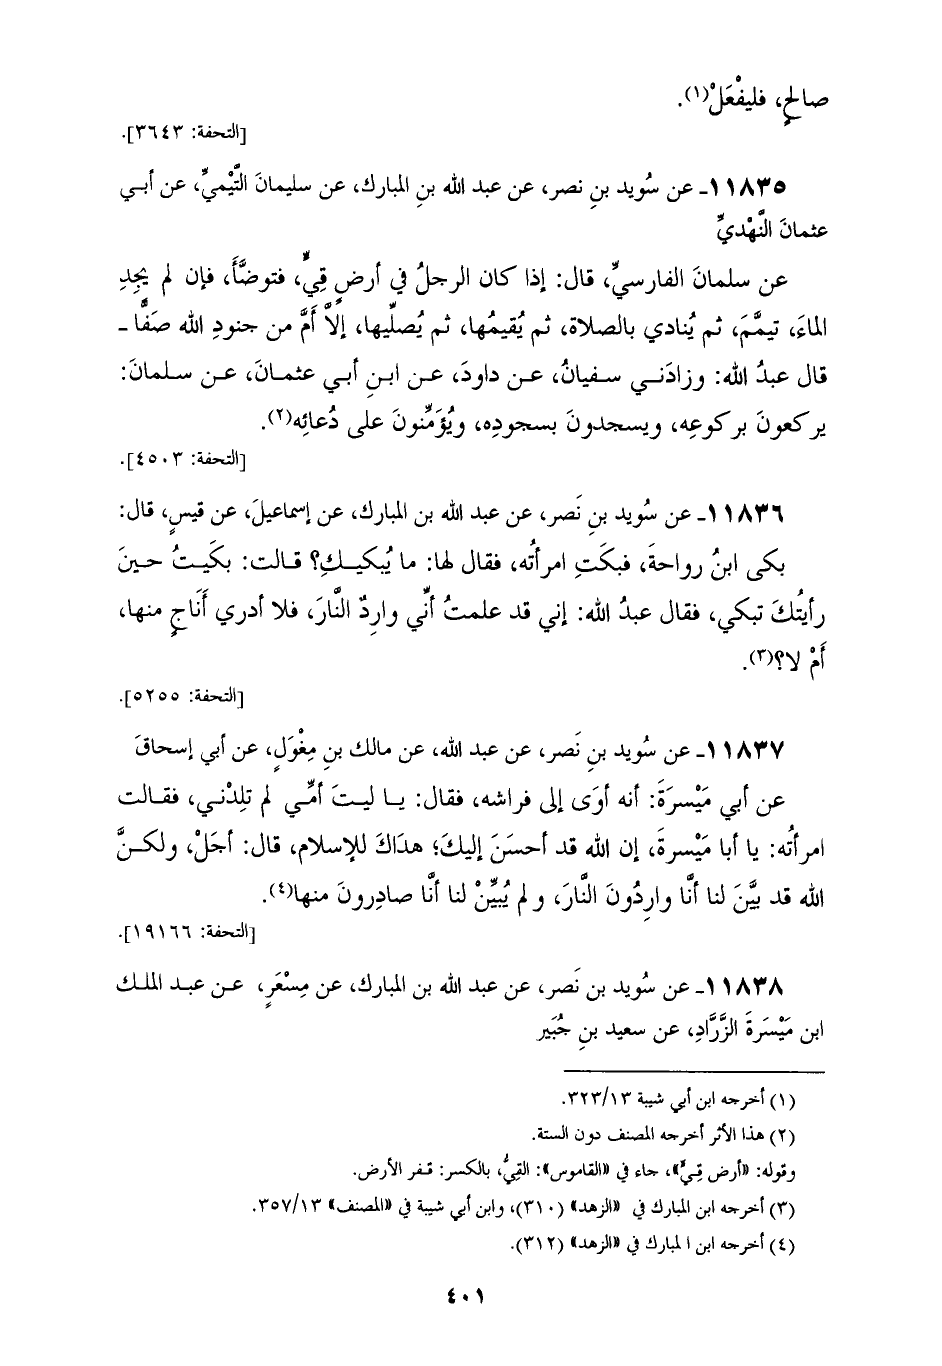 صالحٍ، فليفْعَلْ(١).
[التحفة: ٣٦٤٣].
١١٨٣٥ـ عن سُويد بنِ نصر، عن عبد الله بنِ المبارك، عن سليمانَ التَّيْميِّ، عن أبي
عثمانَ النَّهْديِّ
عن سلمانَ الفارسيِّ، قال: إذا كان الرجلُ في أرضٍ قِيٍّ، فتوضَّأَ، فإن لم يجِدِ
الماءَ، تيمَّمَ، ثم يُنادي بالصلاة، ثم يُقيمُها، ثم يُصلِّيها، إلاَّ أَمَّ من جنودِ الله صَفًّا ـ
قال عبدُ الله: وزادَني سفيانُ، عن داودَ، عن ابنِ أبي عثمانَ، عن سلمانَ:
يركعونَ بركوعِه، ويسجدونَ بسجودِه، ويُؤَمِّنونَ على دُعائِه(٢).
[التحفة: ٤٥٠٣].
١١٨٣٦ـ عن سُويد بنِ نَصر، عن عبد الله بن المبارك، عن إسماعيلَ، عن قيسٍ، قال:
بكى ابنُ رواحةَ، فبكَتِ امرأتُه، فقال لها: ما يُبكيكِ؟ قالت: بكَيتُ حينَ
رأيتُكَ تبكي، فقال عبدُ الله: إني قد علمتُ أنِّي وارِدٌ النَّارَ، فلا أدري أَنَاجٍ منها،
أَمْ لا؟(٣).
[التحفة: ٥٢٥٥].
١١٨٣٧ـ عن سُويد بنِ نَصر، عن عبد الله، عن مالك بنِ مِغْوَلٍ، عن أبي إسحاقَ
عن أبي مَيْسرَةَ: أنه أوَى إلى فراشه، فقال: يا ليتَ أمِّي لم تلِدْني، فقالت
امرأتُه: يا أبا مَيْسرةَ، إن الله قد أحسَنَ إليكَ؛ هداكَ للإسلام، قال: أجَلْ، ولكنَّ
الله قد بيَّنَ لنا أنَّا وارِدُونَ النَّارَ، ولم يُبيِّنْ لنا أنَّا صادِرونَ منها(٤).
[التحفة: ١٩١٦٦].
١١٨٣٨ـ عن سُويد بن نَصر، عن عبد الله بن المبارك، عن مِسْعَرٍ، عن عبد الملك
ابن مَيْسَرةَ الزَّرَّادِ، عن سعيد بنِ جُبَير
(١) أخرجه ابن أبي شيبة ٣٢٣/١٣.
(٢) هذا الأثر أخرجه المصنف دون الستة.
وقوله: «أرض قِيٍّ»، جاء في «القاموس»: القِيُّ، بالكسر: قفر الأرض.
(٣) أخرجه ابن المبارك في «الزهد» (٣١٠)، وابن أبي شيبة في «المصنف» ٣٥٧/١٣.
(٤) أخرجه ابن المبارك في «الزهد» (٣١٢).
٤٠١